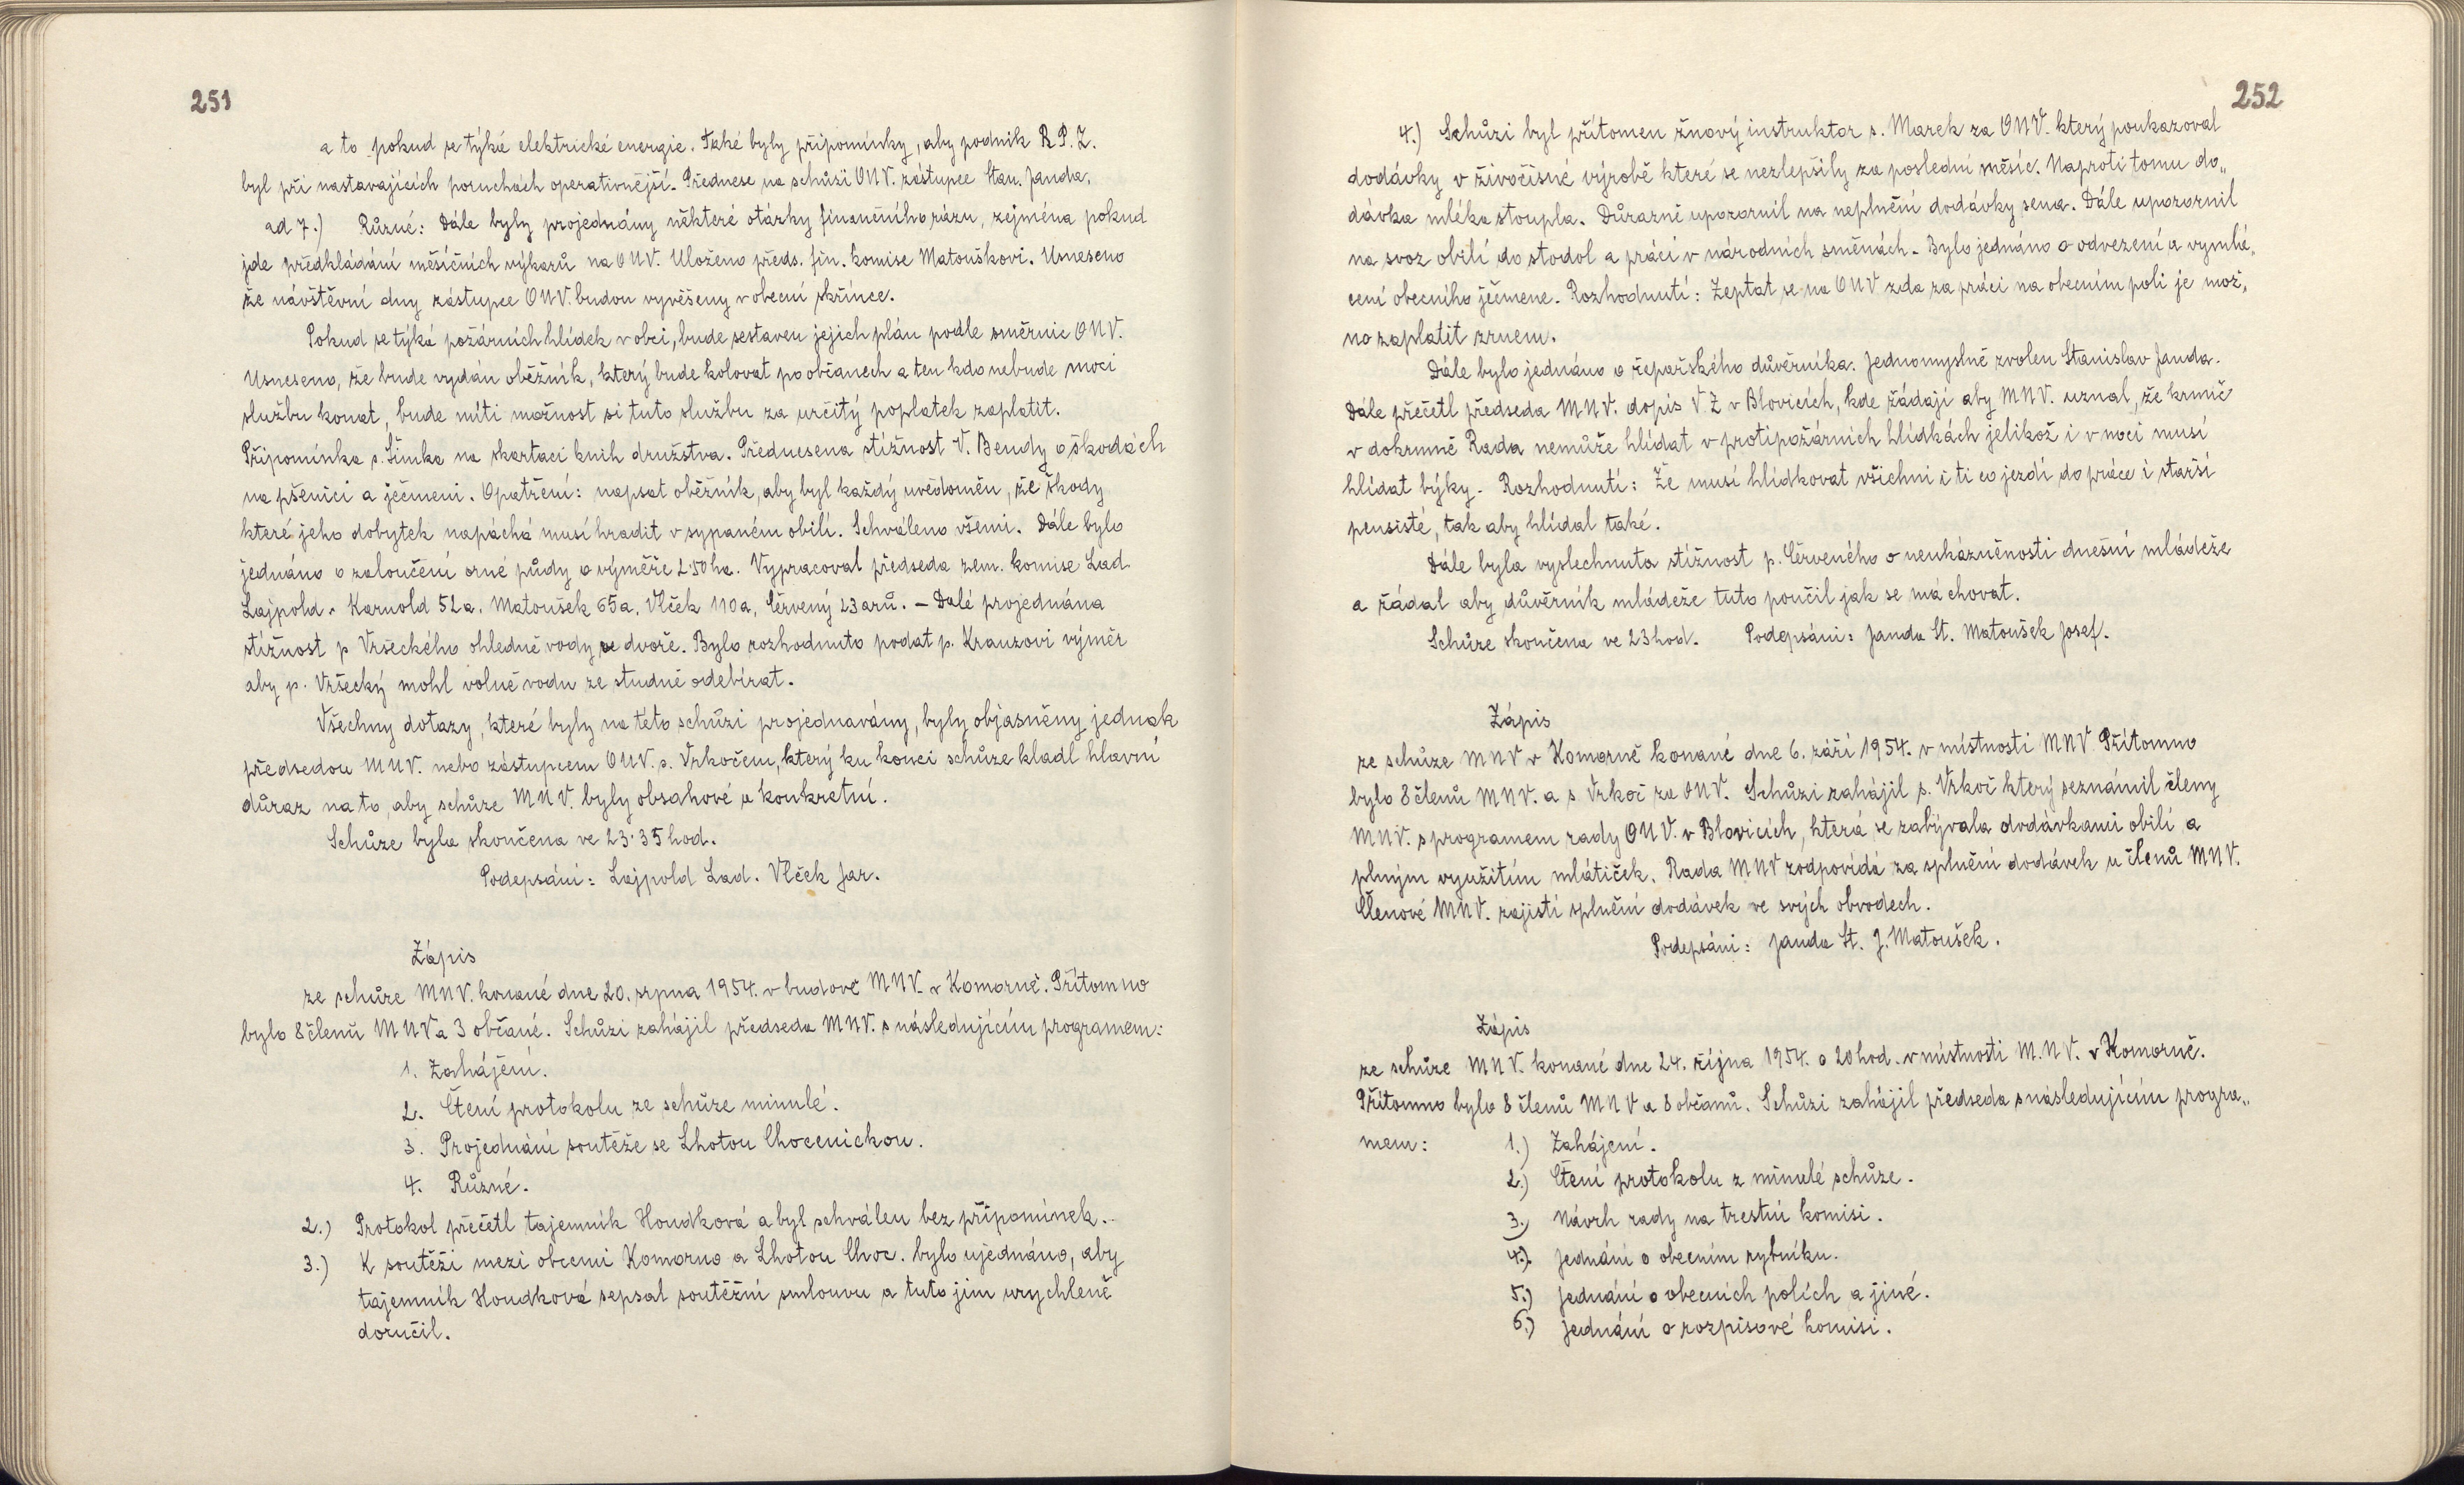 251
a to pokud se týká elektrické energie. Také byly připomínky, aby podnik R.P.Z.
byl při nastavajících poruchách operativnější. Přednese na schůzi ONV. zástupce Stan. Janda.
ad 7.) Různé: Dále byly projednány některé otázky finančního rázu, zejména pokud
jde předkládání měsíčních výkazů na ONV. Uloženo předs. fin. komise Matouškovi. Usneseno
že návštěvní dny zástupce ONV. budou vyvěšeny v obecní skřínce.
Pokud se týká požárních hlídek v obci, bude sestaven jejich plán podle směrnic ONV.
Usneseno, že bude vydán oběžník, který bude kolovat po občanech a ten kdo nebude moci
službu konat, bude míti možnost si tuto službu za určitý poplatek zaplatit.
Připomínka s. Šimka na skartaci knih družstva. Přednesena stížnost V. Bendy o škodách
na pšenici a ječmeni. Opatření: napsat oběžník, aby byl každý uvědoměn, že škody
které jeho dobytek napáchá musí hradit v sypaném obilí. Schváleno všemi. Dále bylo
jednáno o zaloučení orné půdy o výměře 2·50 ha. Vypracoval předseda zem. komise Lad.
Lajpold. Karnold 52a. Matoušek 65a, Vlček 110a, Červený 23 arů. - Dalé projednána
stížnost p Vršeckého ohledně vody ve dvoře. Bylo rozhodnuto podat p. Krauzovi výměr
aby p. Vršecký mohl volně vodu ze studně odebírat.
Všechny dotazy, které byly na této schůzi projednavány, byly objasněny jednak
předsedou MNV. nebo zástupcem ONV. s. Vrkočem, který ku konci schůze kladl hlavní
důraz na to, aby schůze MNV. byly obsahové a konkretní.
Schůze byla skončena ve 23·35 hod.
Podepsáni: Lajpold Lad. Vlček Jar.
Zápis
ze schůze MNV. konané dne 20. srpna 1954. v budově MNV. v Komorně. Přítomno
bylo 8 členů MNV a 3 občané. Schůzi zahájil předseda MNV. s následujícím programem:
1. Zahájení.
2. Čtení protokolu ze schůze minulé.
3. Projednání soutěže se Lhotou Chocenickou.
4. Různé.
2.) Protokol přečetl tajemník Houdková a byl schválen bez připomínek.
3.) K soutěži mezi obcemi Komorno a Lhotou Choc. bylo ujednáno, aby
tajemník Houdková sepsal soutěžní smlouvu a tuto jim urychleně
doručil.
252
4.) Schůzi byl přítomen žnový instruktor s. Marek za ONV. který poukazoval
dodávky v živočisné výrobě které se nezlepšily za poslední měsíc. Naproti tomu do„
dávka mléka stoupla. Důrazně upozornil na neplnění dodávky sena. Dále upozornil
na svoz obilí do stodol a práci v národních směnách. Bylo jednáno o odvezení a vymlá„
cení obecního ječmene. Rozhodnutí: Zeptat se na ONV zda za práci na obecním poli je mož„
no zaplatit zrnem.
Dále bylo jednáno o řepařského důvěrníka. Jednomyslně zvolen Stanislav Janda.
Dále přečetl předseda MNV. dopis V.Z v Blovicích, kde žádají aby MNV. uznal, že krmič
v dokrmně Rada nemůže hlídat v protipožárních hlídkách jelikož i v noci musí
hlídat býky. Rozhodnutí: Že musí hlídkovat všichni i ti co jezdí do práce i starší
pensisté, tak aby hlídal také.
Dále byla vyslechnuta stížnost p. Červeného o neukázněnosti dnešní mládeže
a žádal aby důvěrník mládeže tuto poučil jak se má chovat.
Schůze skončena ve 23 hod. Podepsáni: Janda St. Matoušek Josef.
Zápis
ze schůze MNV v Komorně konané dne 6. září 1954. v místnosti MNV Přítomno
bylo 8 členů MNV. a s Vrkoč za ONV. Schůzi zahájil s. Vrkoč který seznámil členy
MNV. s programem rady ONV. v Blovicích, která se zabývala dodávkami obilí a
plným využitím mlátiček. Rada MNV zodpovídá za splnění dodávek u členů MNV.
Členové MNV. zajistí splnění dodávek ve svých obvodech.
Podepsáni: Janda St. J. Matoušek.
Zápis
ze schůze MNV. konané dne 24. října 1954. o 20 hod. v místnosti M.N.V. v Komorně.
Přítomno bylo 8 členů MNV a 8 občanů. Schůzi zahájil předseda s následujícím progra„
mem: 1.) Zahájení.
2.) Čtení protokolu z minulé schůze.
3.) Návrh rady na trestní komisi.
4.) Jednání o obecním rybníku.
5.) Jednání o obecních polích a jiné.
6.) Jednání o rozpisové komisi.